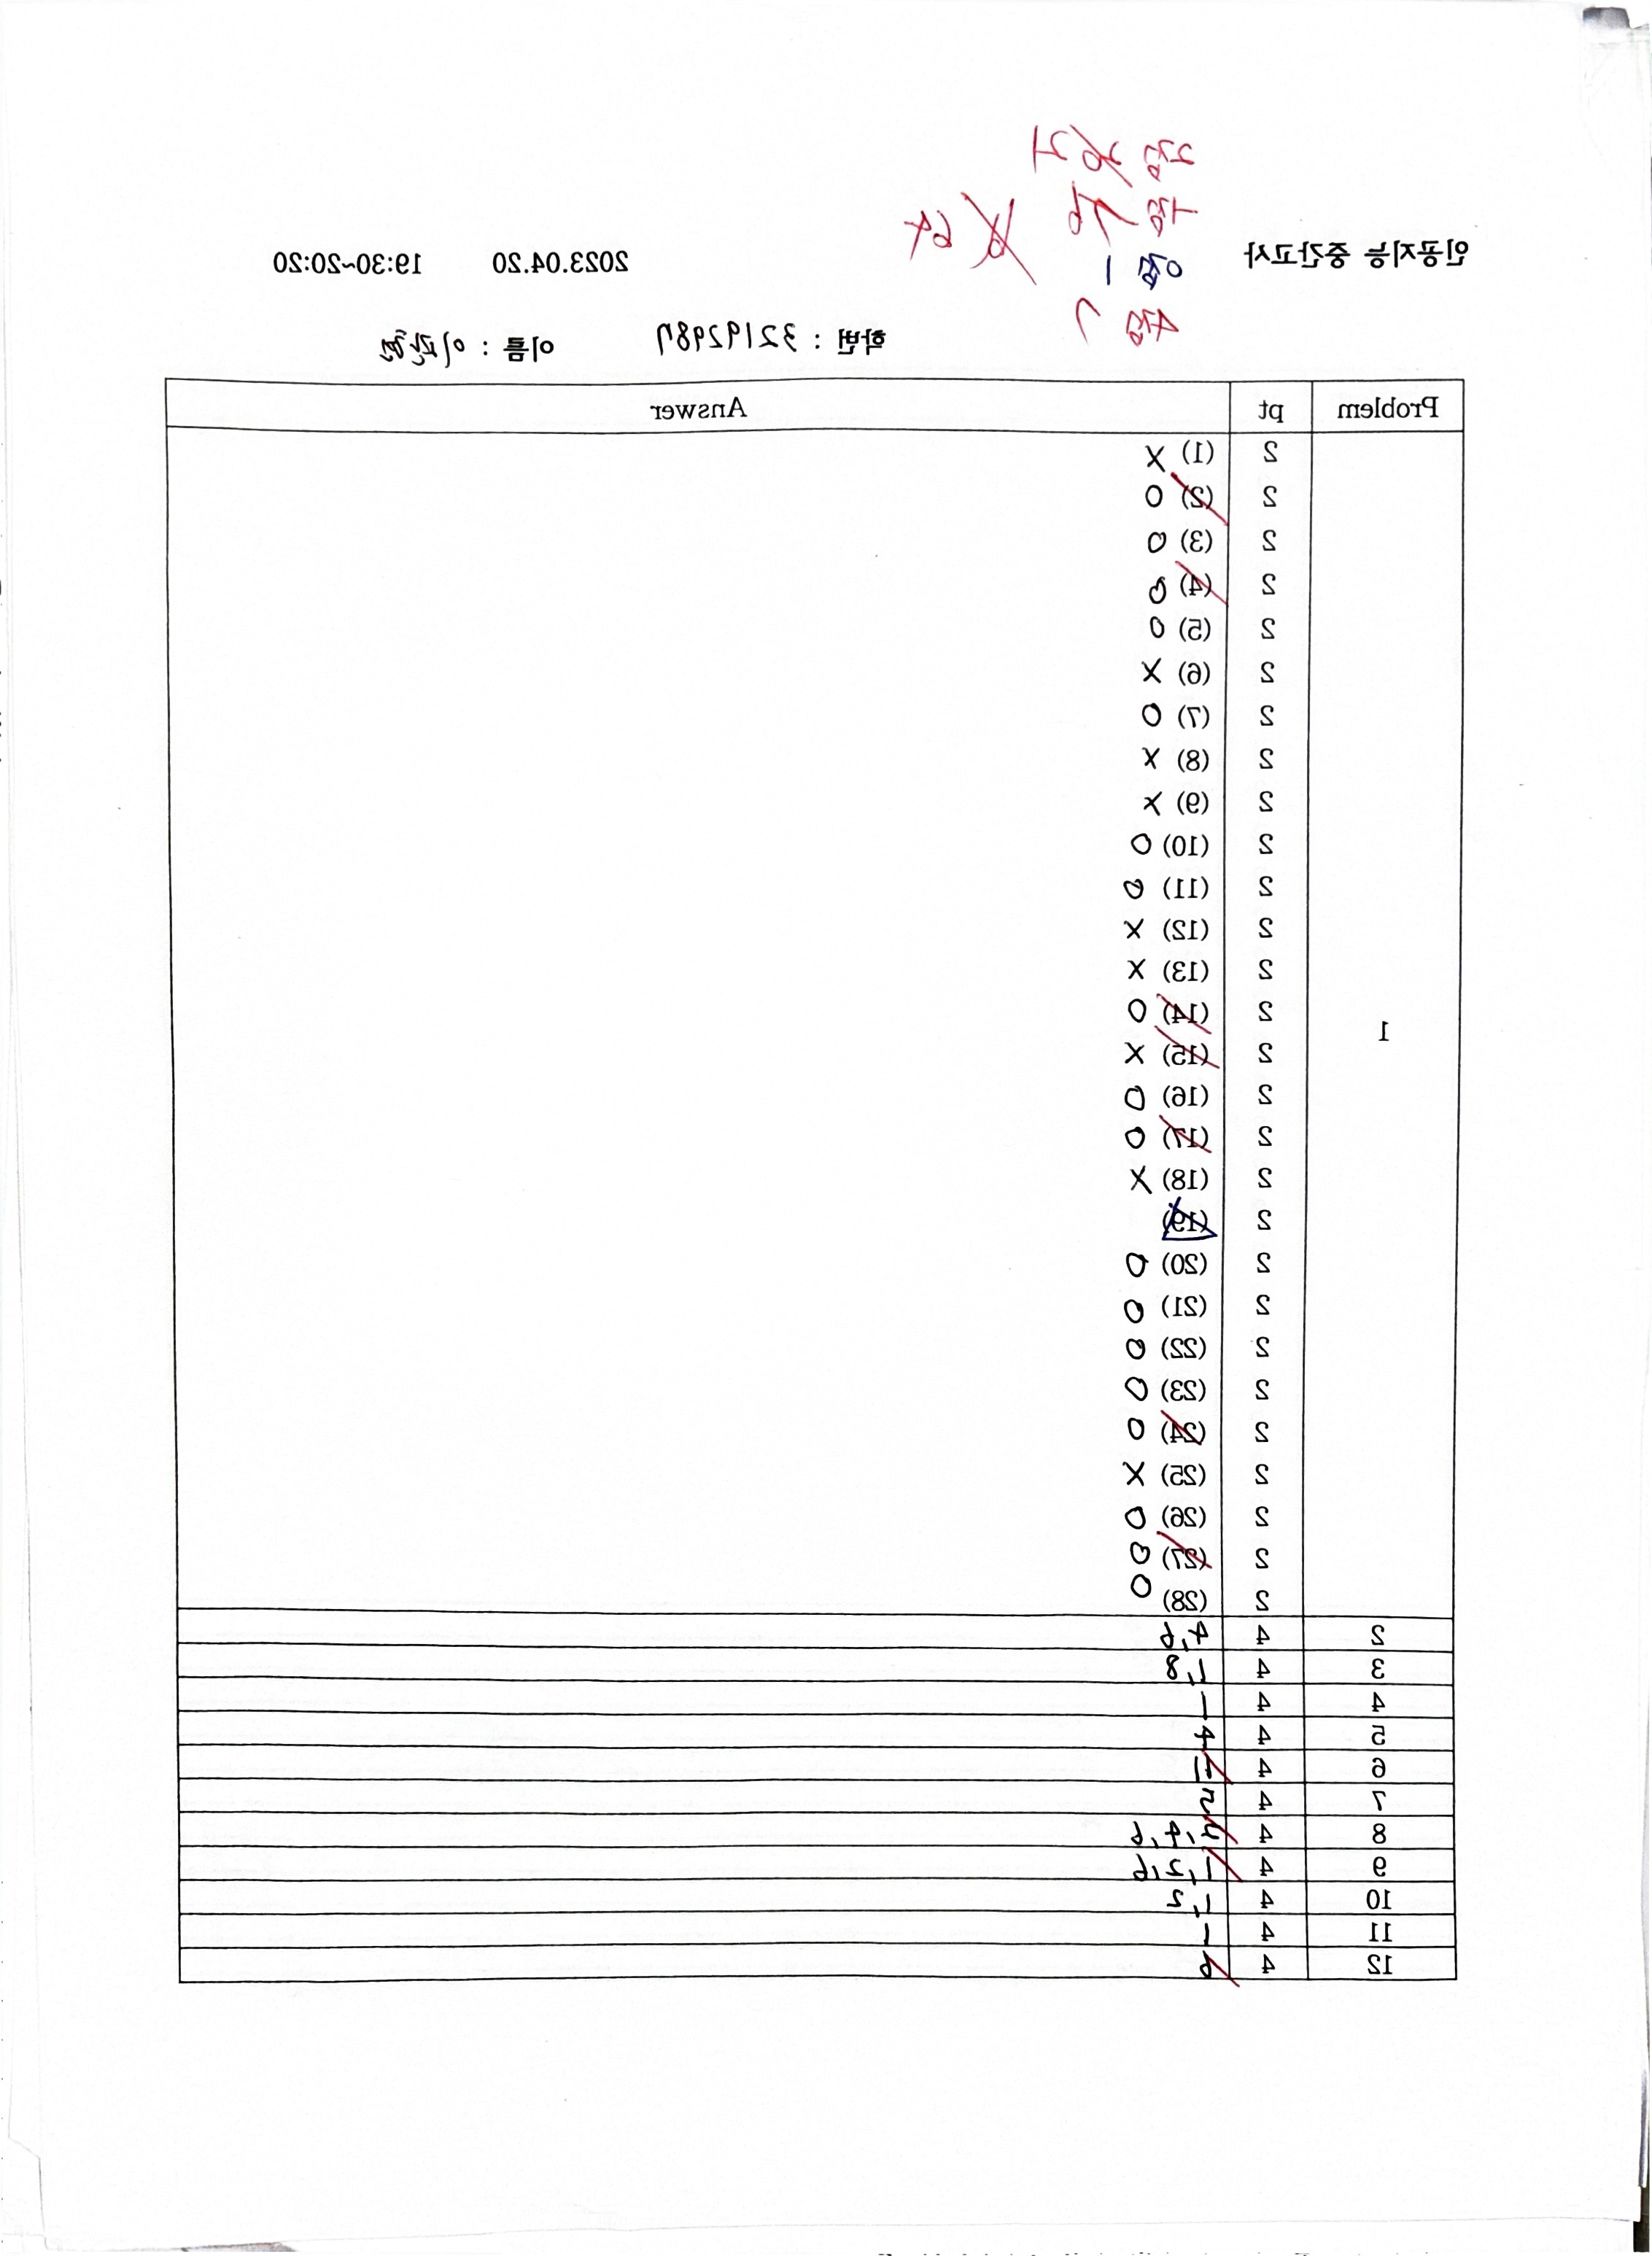 2점 21
-1점 7 6
인공지능 중간고사 0점 1 64 2023.04.20 19:30~20:20
4점 7
학번 : 32192987 이름 : 이관현
Problem pt Answer
1
2 (1) X
2 (2) O
2 (3) O
2 (4) O
2 (5) O
2 (6) X
2 (7) O
2 (8) X
2 (9) X
2 (10) O
2 (11) O
2 (12) X
2 (13) X
2 (14) O
2 (15) X
2 (16) O
2 (17) O
2 (18) X
2 (19)
2 (20) O
2 (21) O
2 (22) O
2 (23) O
2 (24) O
2 (25) X
2 (26) O
2 (27) O
2 (28) O
2 4 4,6
3 4 1,8
4 4 1
5 4 4
6 4
7 4 2
8 4 4,6
9 4 1,2,6
10 4 1,2
11 4 1
12 4 6